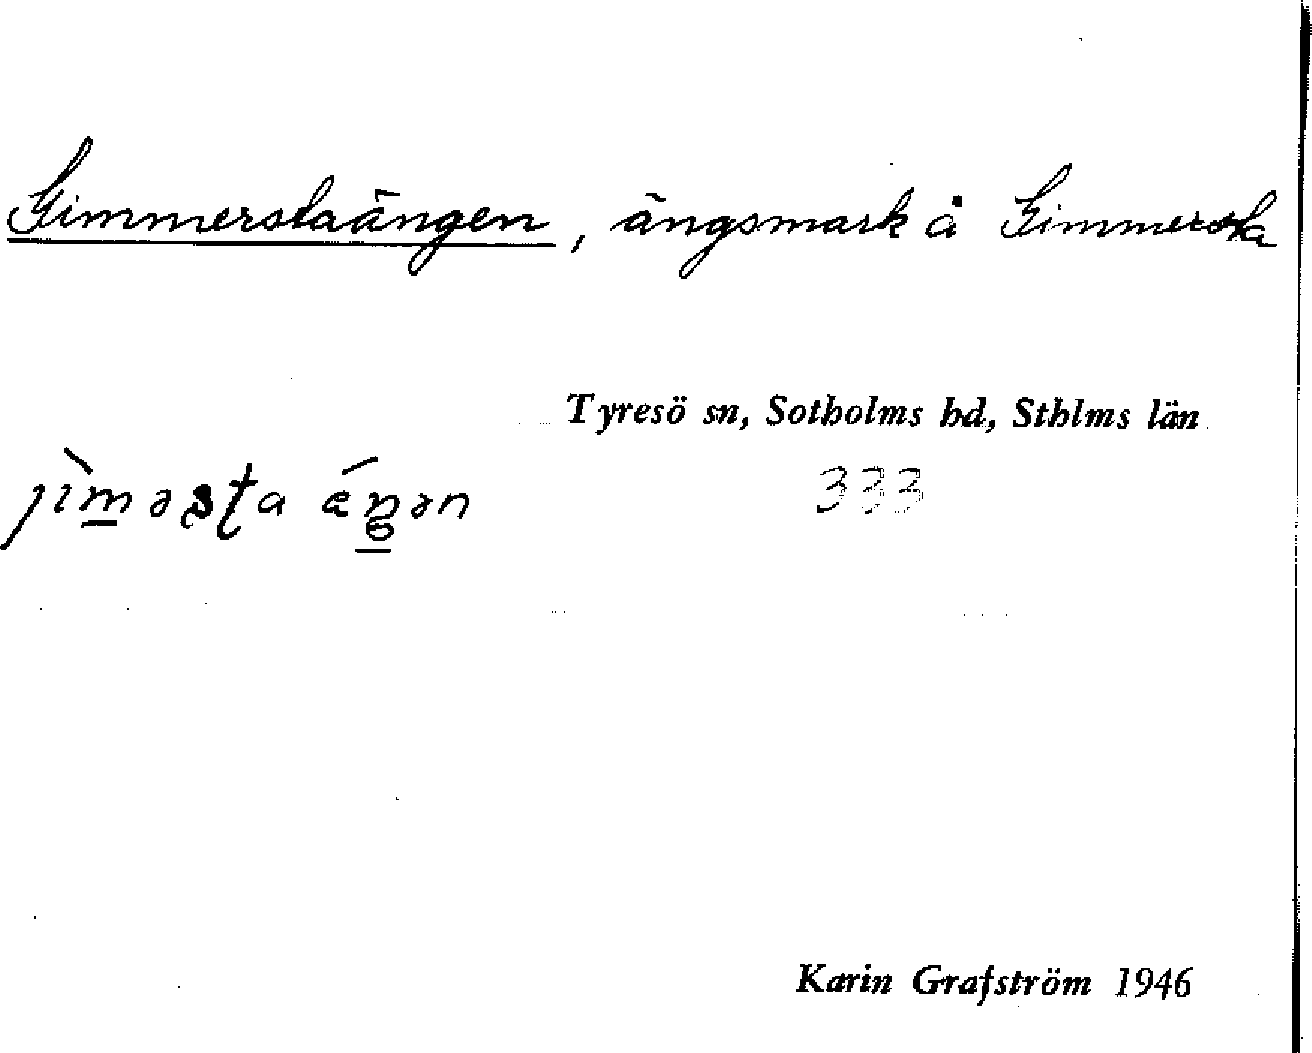 Gimmerstaängen, ängsmark å Gimmersta
Tyresö sn, Sotholms hd, Sthlms län
333
Karin Grafström 1946